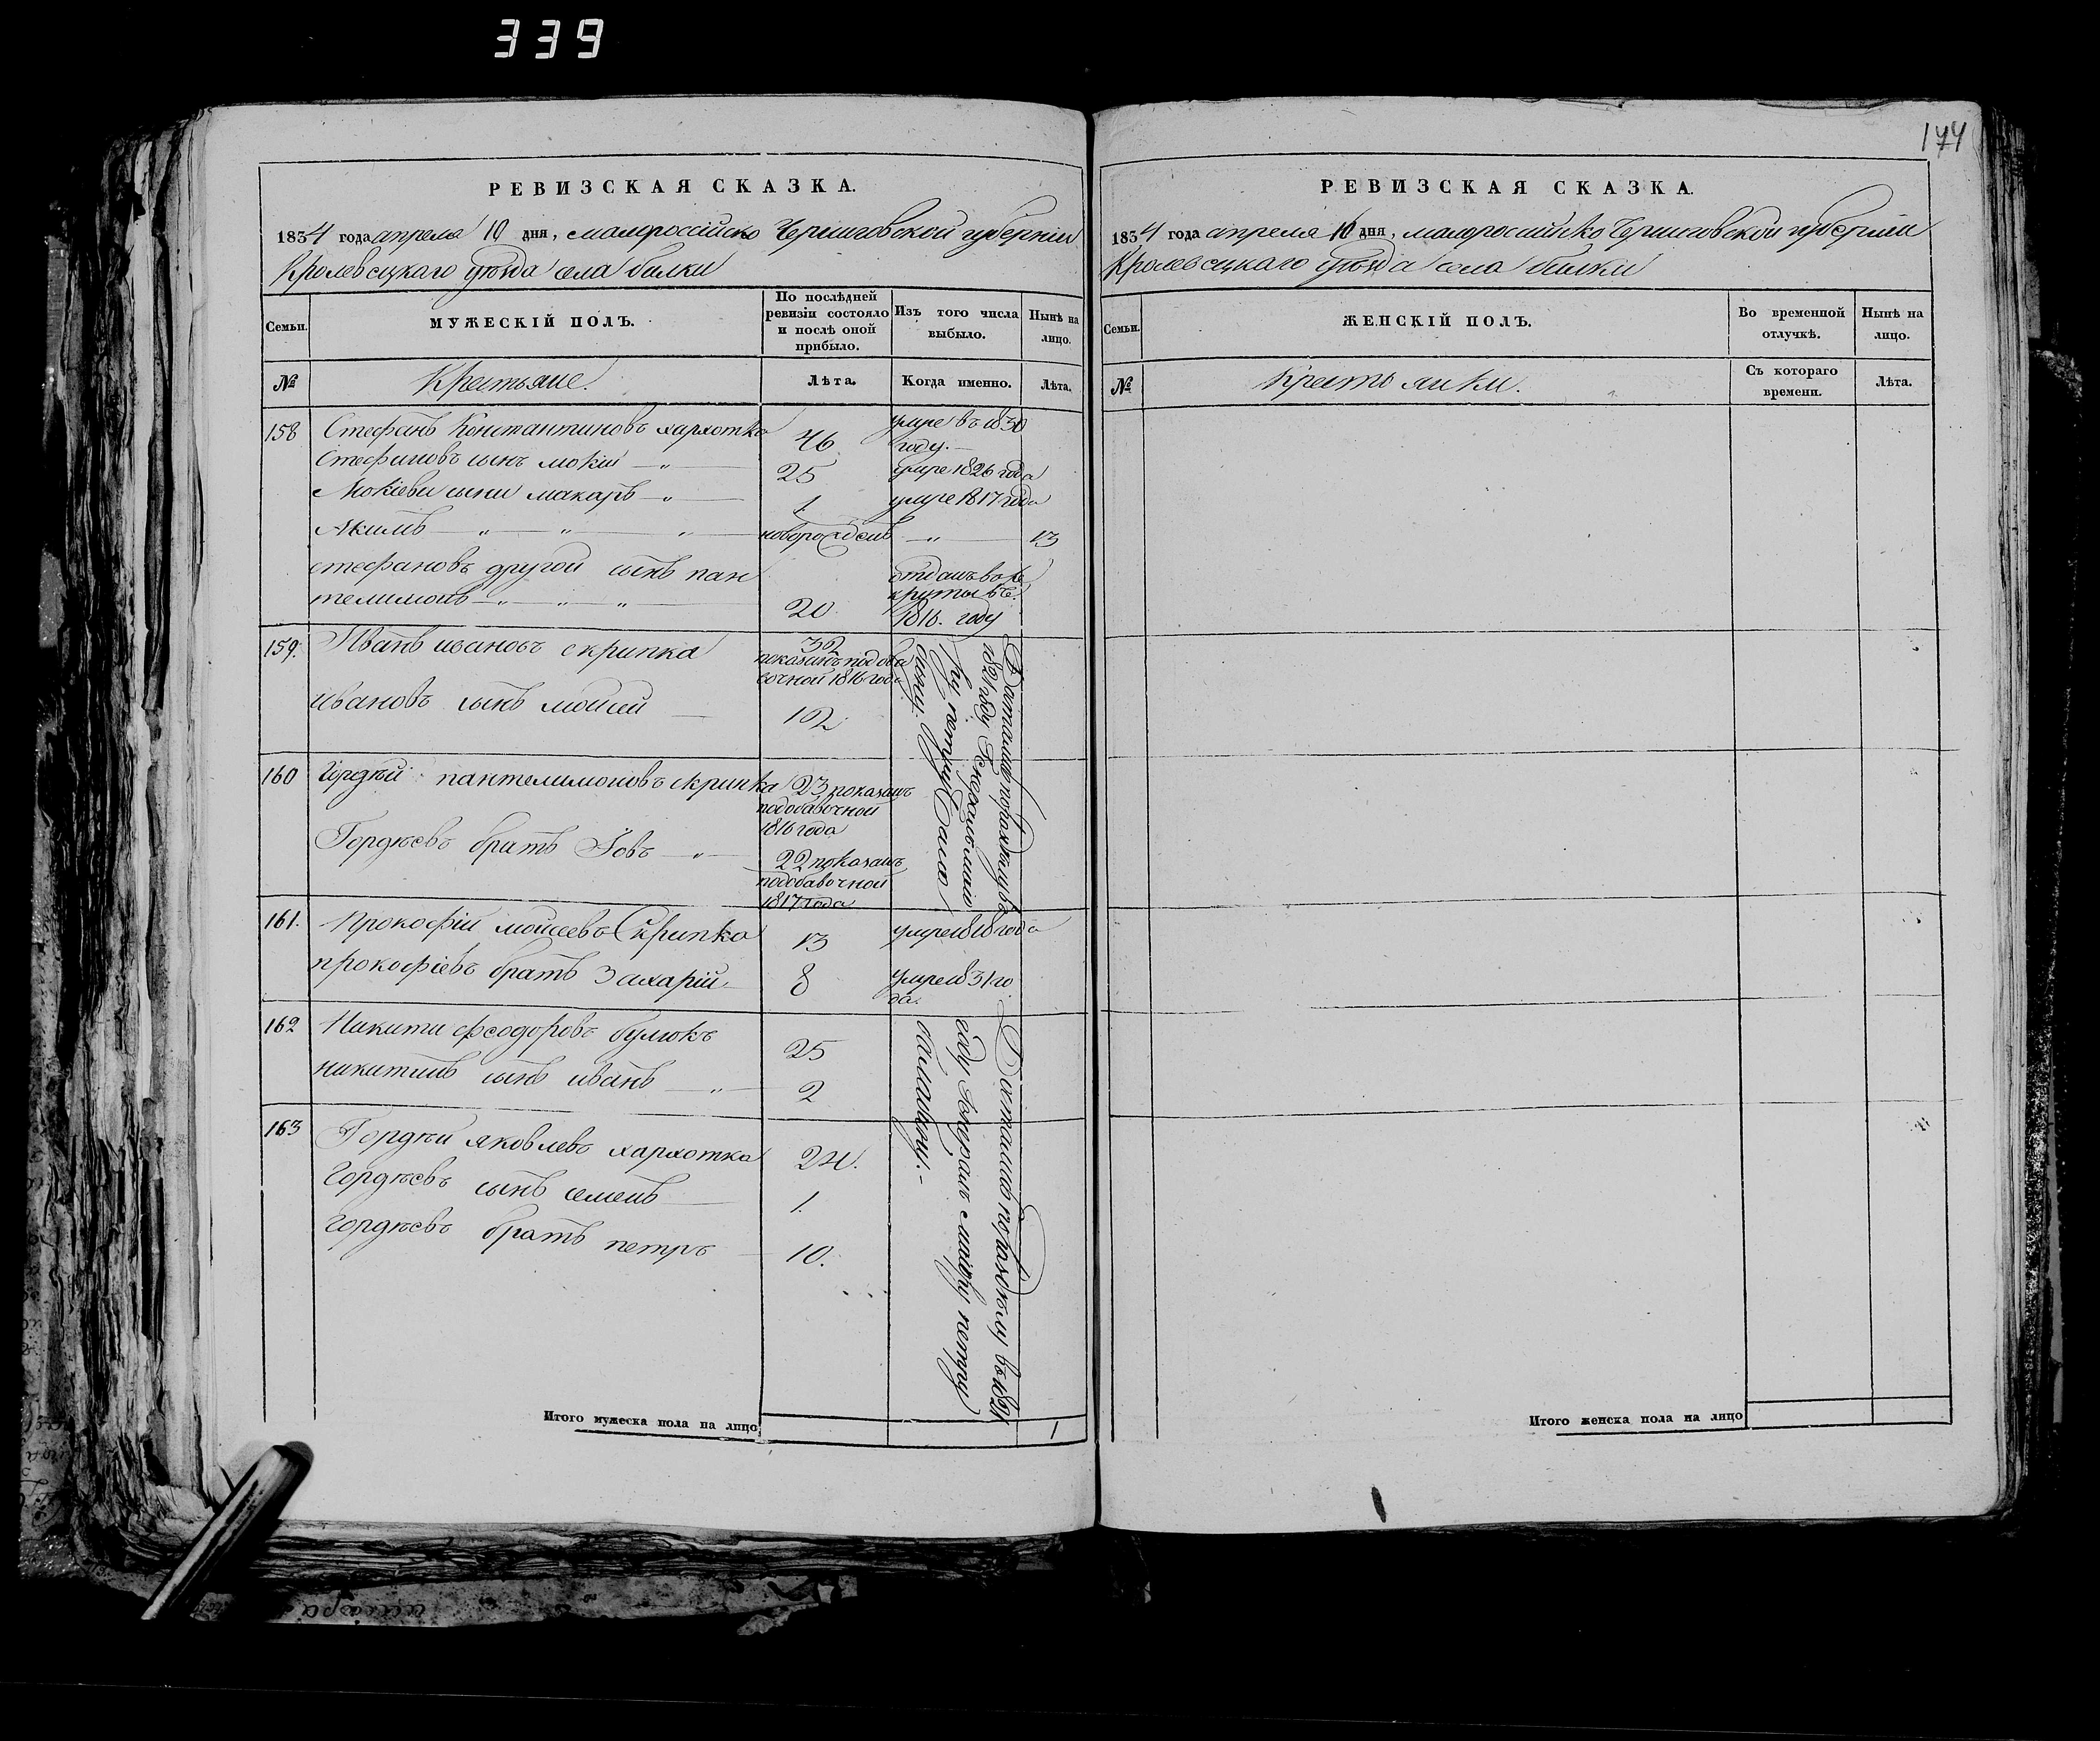 339
174
РЕВИЗСКАЯ СКАЗКА.
1834 года апреля 10 дня, малороссійско Черниговской губерніи
Кролевецкаго уѣзда села билки
Семьи.
МУЖЕСКІЙ ПОЛЪ.
По послѣдней ревизіи состояло и послѣ оной прибыло.
Изъ того числа выбыло.
Нынѣ на лицо.
№
Крестьяне.
Лѣта.
Когда именно.
Лѣта.
158 Стефанъ Константиновъ хархотка 46 умре въ 1830 году.—
Стефановъ сынъ мокій — „ — 25 умре 1826 года
Мокіевы сыни макаръ — „ — 1. умре 1817 года
Якимъ — „ — „ — „ — новорожденъ — „ — 13
стефановъ другой сынъ пан
телимонъ — „ — „ — „ — 20 отданъ въ ре
круты въ
1816. году
159. Иванъ ивановъ скрипка 32
показанъ по доба
вочной 1816 года
ивановъ сынъ мойсей — 12
160 Гордѣй пантелимоновъ скрипка 23 показанъ
по добавочной
1816 года
Гордѣевъ братъ Іовъ — „ — 22 показанъ
по добавочной
1817 года
1821 году Генералъ маіо
ру петру
161. Прокофій мойсеевъ Скрипка 13 умре 1818 года
прокофіевъ братъ Захарій 8 умре 1831 го
да.
162 Никита феодоровъ булюкъ 25
никитинъ сынъ иванъ — „ — 2
163 Гордѣй яковлевъ хархотка 24.
Гордѣевъ сынъ семенъ — 1.
Гордѣевъ братъ петръ — 10.
въ 1821
году Генералъ маіору петру
Итого мужеска пола на лицо 1
РЕВИЗСКАЯ СКАЗКА.
1834 года апреля 10 дня, малоросійско Черниговской губерніи
Кролевецкаго уѣзда села билки
Семьи.
ЖЕНСКІЙ ПОЛЪ.
Во временной отлучкѣ.
Нынѣ на лицо.
№
Крестьянки.
Съ котораго времени.
Лѣта.
Итого женска пола на лицо